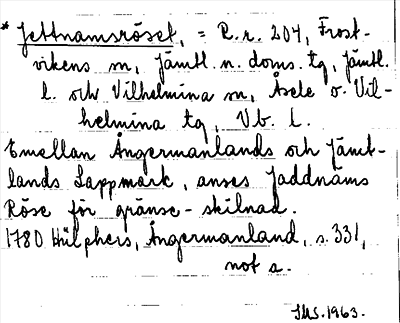 * Jettnamsröset, = R.r. 204, Frost-
vikens sn, Jämtl. n. doms. tg, Jämtl.
l. och Vilhelmina sn, Åsele o. Vil-
helmina tg, Vb. l.
Emellan Ångermanlands och Jämt-
lands Lappmark, anses Jaddnäms
Röse för gränse-skilnad.
1780 Hülphers, Ångermanland, s. 331,
not a.
1963.